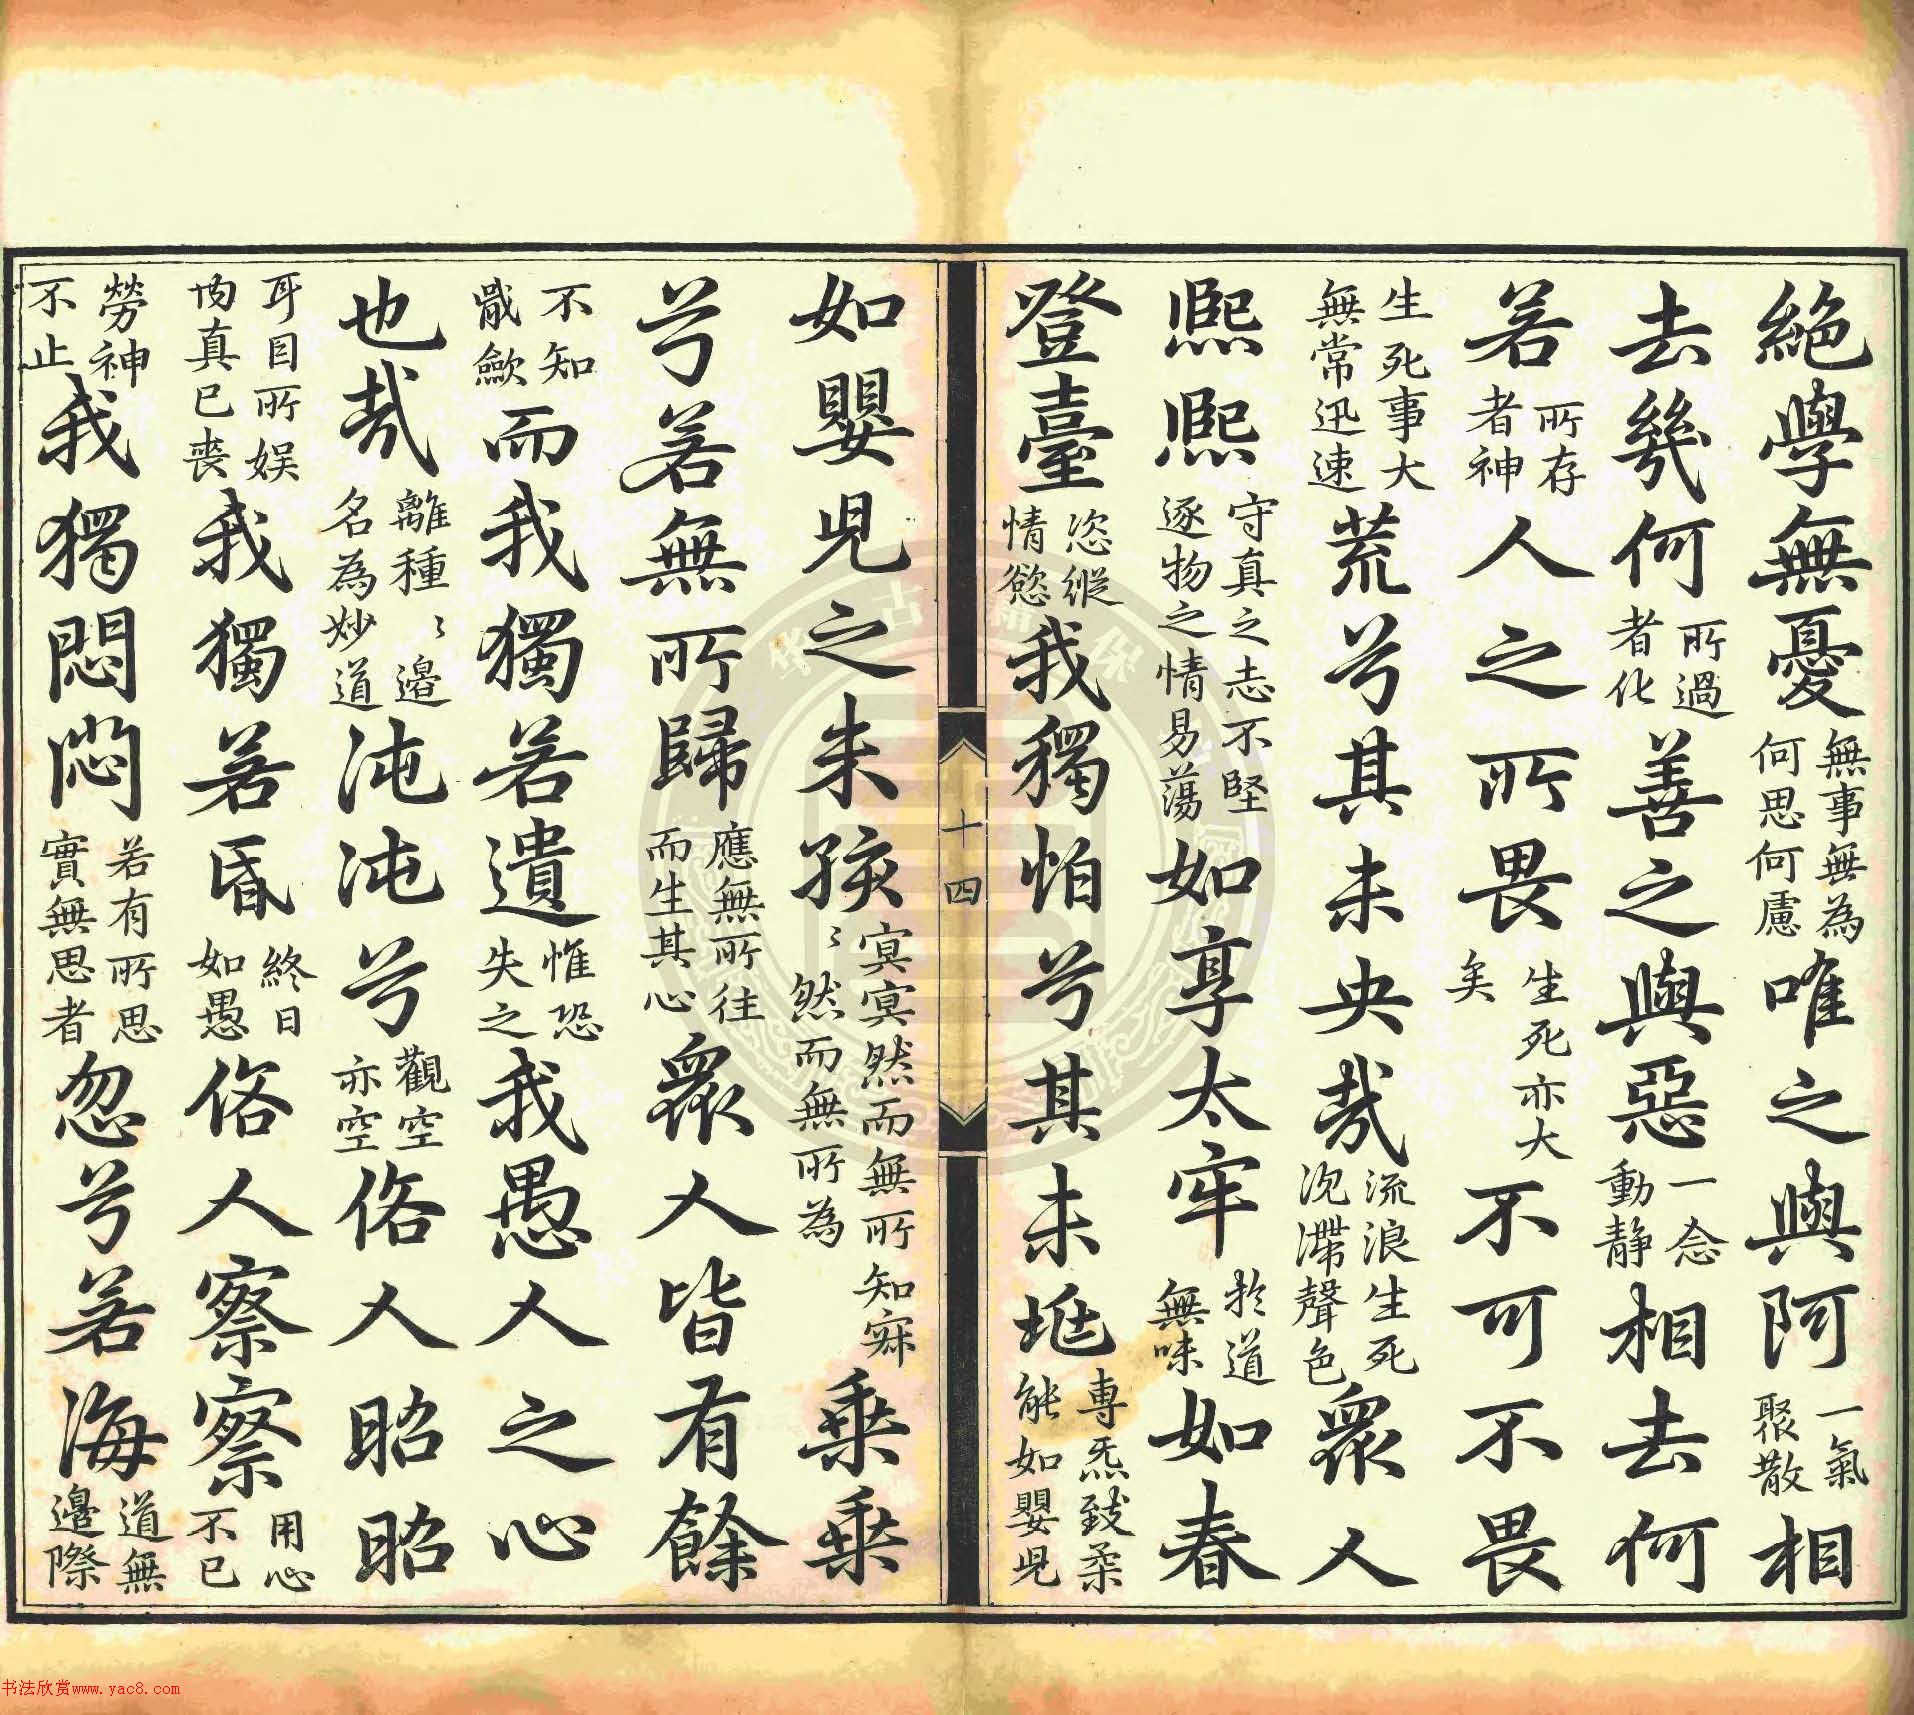 絕學無憂無事無為何思何慮唯之與阿一氣聚散相
去幾何所過者化善之與惡一念動靜相去何
若所存者神人之所畏生死亦大矣不可不畏
生死事大無常迅速荒兮其未央哉流浪生死沉滯聲色眾人
熙熙守真之志不堅逐物之情易蕩如享太牢於道無味如春
登臺恣縱情慾我獨怕兮其未兆專炁致柔能如嬰兒
十四
如嬰兒之未孩冥冥然而無所知寂〻然而無所為乘乘
兮若無所歸應無所往而生其心眾人皆有餘
不知而我獨若遺惟恐失之我愚人之心
也哉離種〻邊名為妙道沌沌兮觀空亦空俗人昭昭
耳目所娛內真已喪我獨若昏終日如愚俗人察察用心不已
勞神不止我獨悶悶若有所思實無思者忽兮若海道無邊際
书法欣赏www.yac8.com